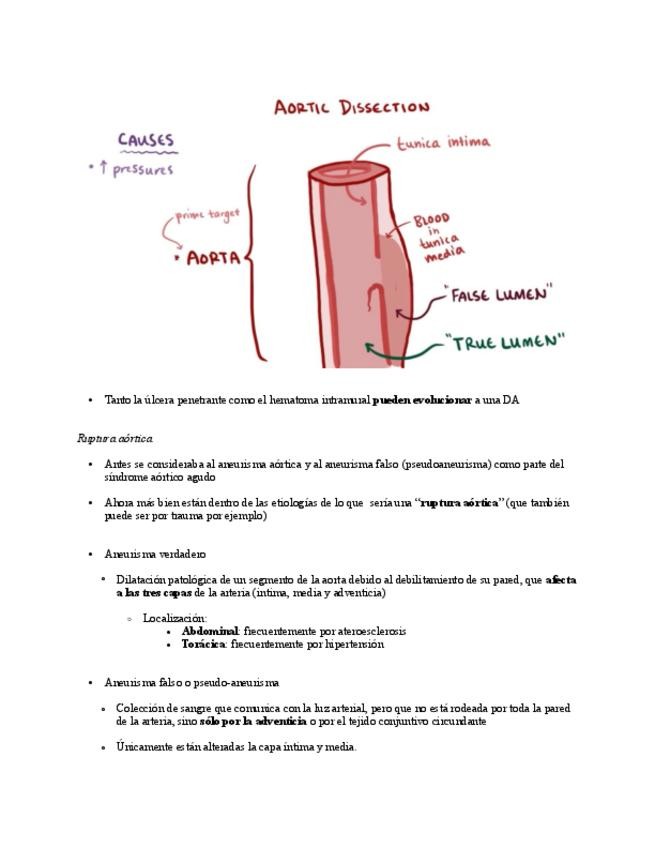 AORTIC DISSECTION
CAUSES
• ↑ pressures
tunica intima
prime target
* AORTA
BLOOD
in
tunica
media
"FALSE LUMEN"
"TRUE LUMEN"
• Tanto la úlcera penetrante como el hematoma intramural pueden evolucionar a una DA
Ruptura aórtica
• Antes se consideraba al aneurisma aórtica y al aneurisma falso (pseudoaneurisma) como parte del
síndrome aórtico agudo
• Ahora más bien están dentro de las etiologías de lo que sería una “ruptura aórtica” (que también
puede ser por trauma por ejemplo)
• Aneurisma verdadero
• Dilatación patológica de un segmento de la aorta debido al debilitamiento de su pared, que afecta
a las tres capas de la arteria (intima, media y adventicia)
○ Localización:
• Abdominal: frecuentemente por ateroesclerosis
• Torácica: frecuentemente por hipertensión
• Aneurisma falso o pseudo-aneurisma
• Colección de sangre que comunica con la luz arterial, pero que no está rodeada por toda la pared
de la arteria, sino sólo por la adventicia o por el tejido conjuntivo circundante
• Únicamente están alteradas la capa íntima y media.